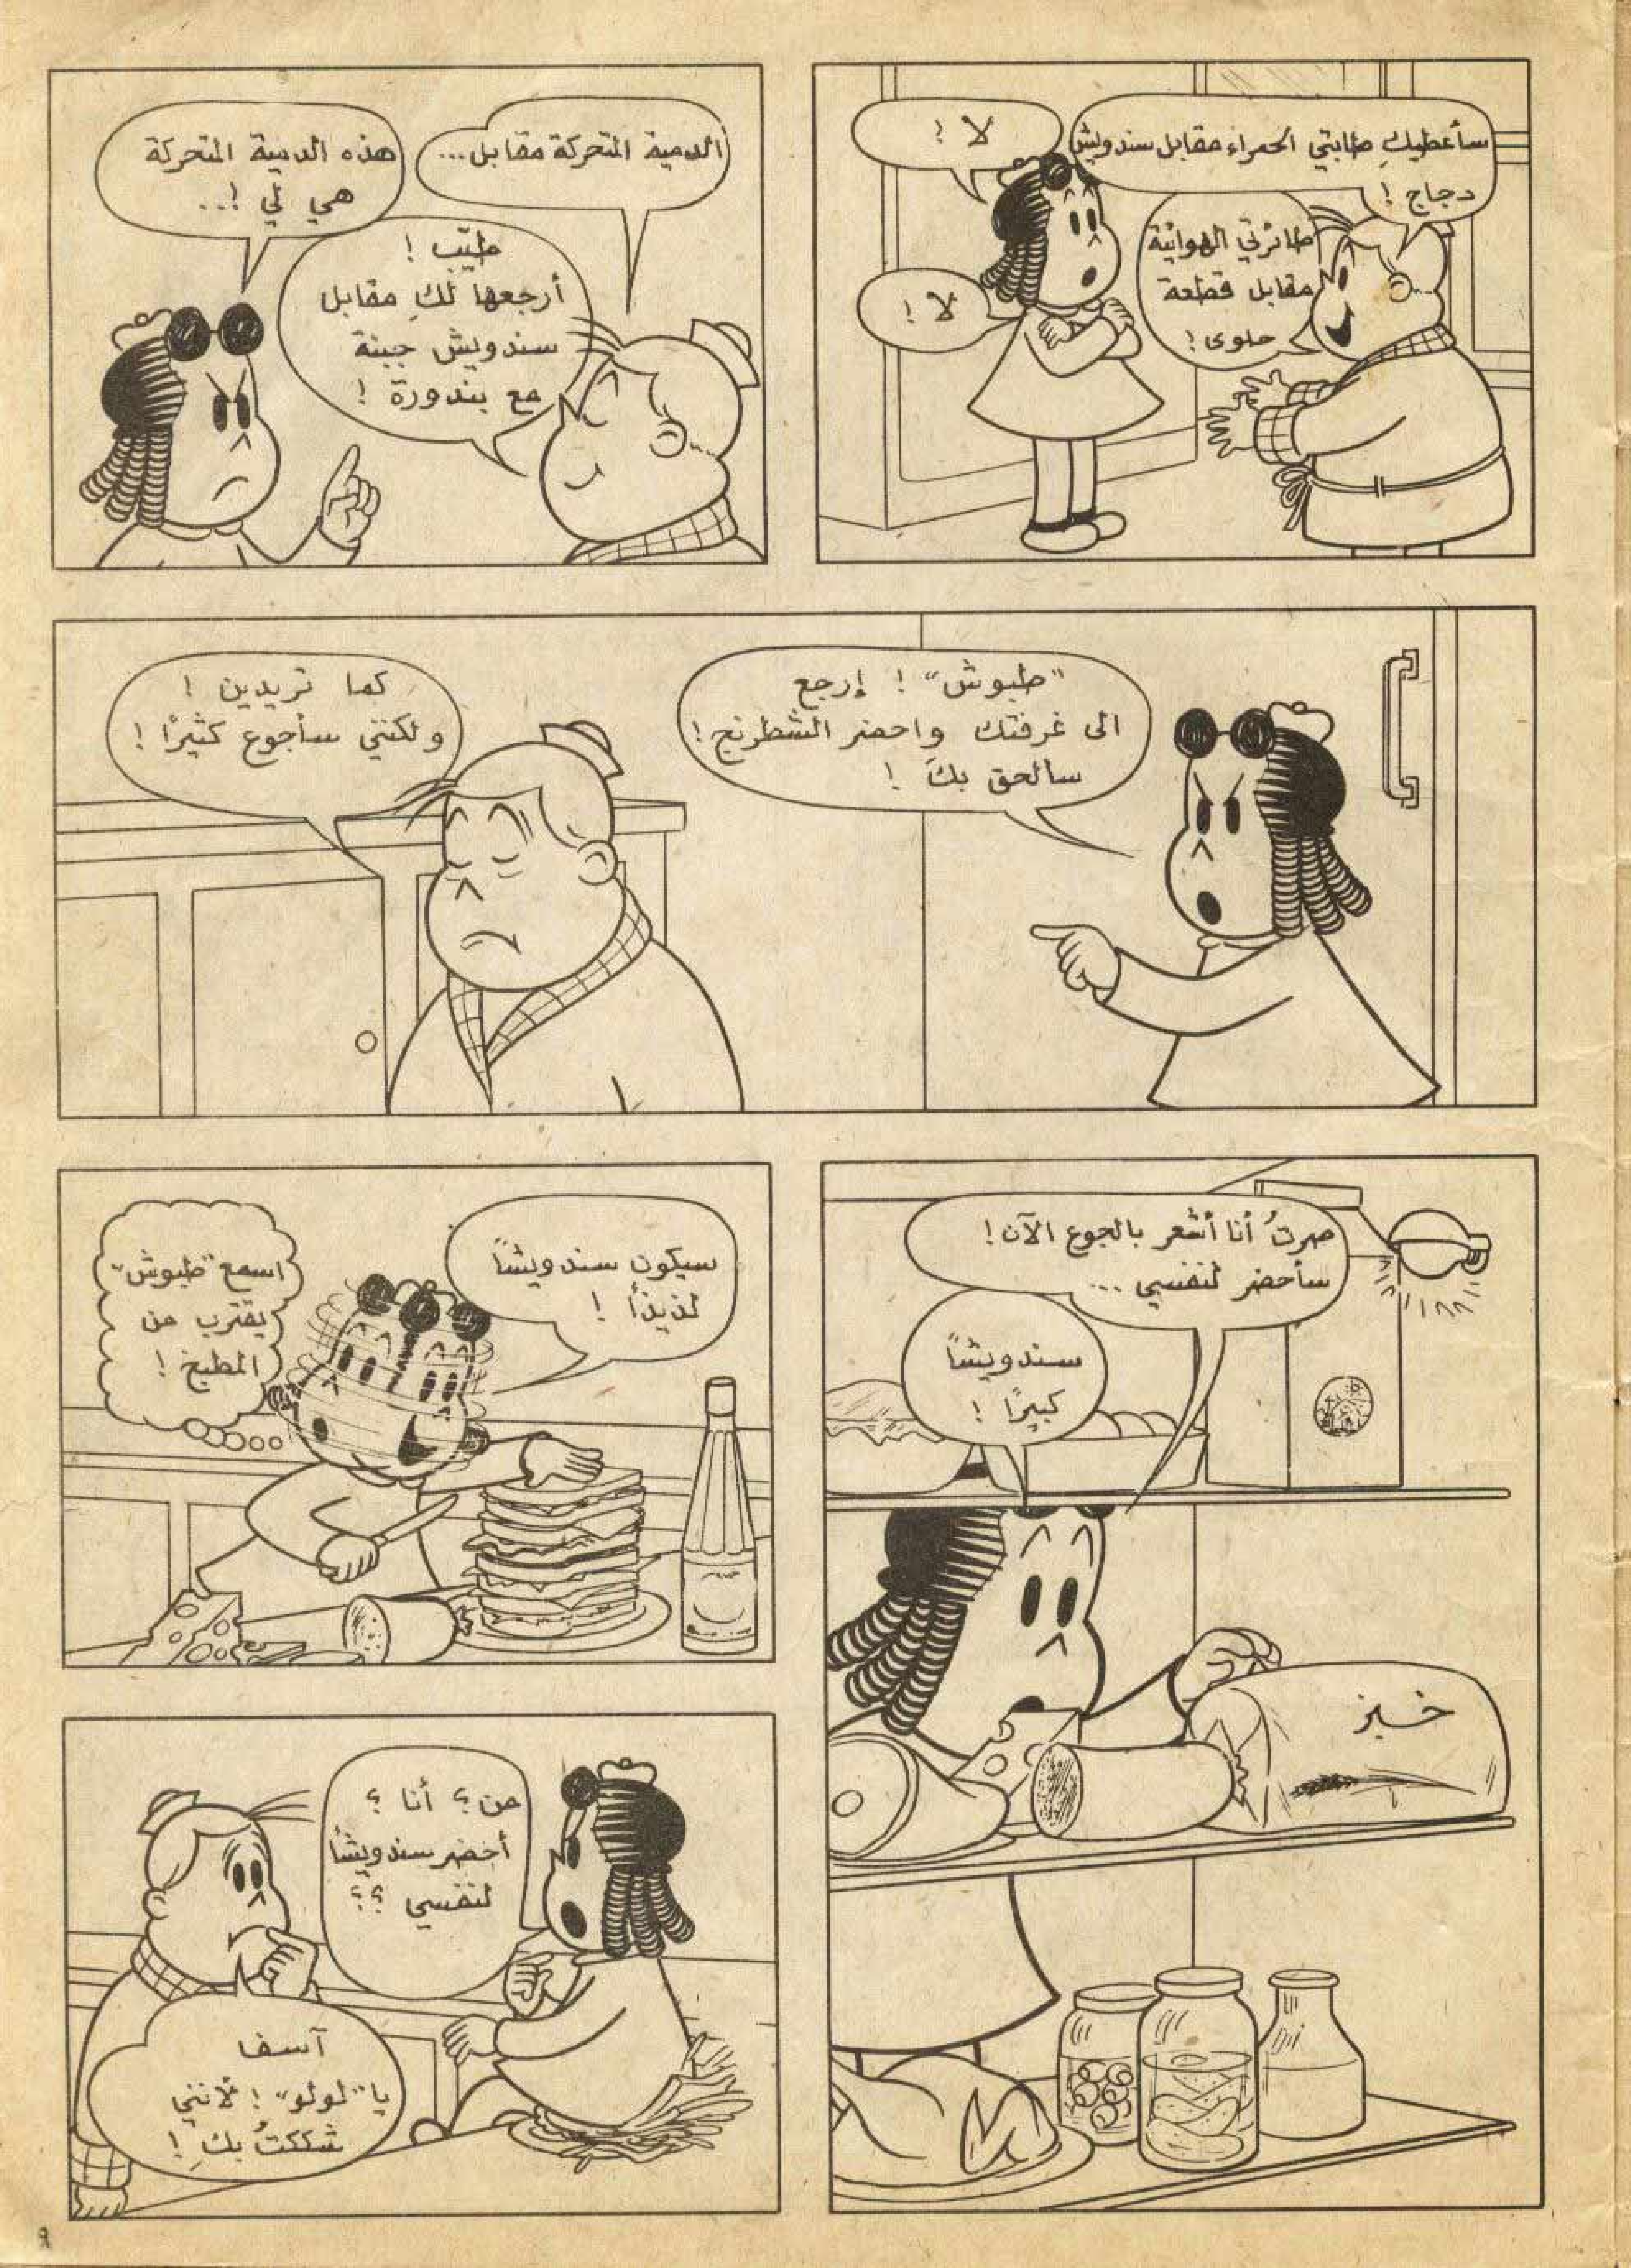 سأعطيكِ طابتي الحمراء مقابل سندويش
دجاج !
لا !
طائرتي الهوائية
مقابل قطعة
حلوى !
لا !
الدمية المتحركة مقابل...
هذه الدمية المتحركة
هي لي !..
طيّب !
أرجعها لكِ مقابل
سندويش جبنة
مع بندورة !
"طبوش" ! إرجع
الى غرفتك واحضر الشطرنج !
سالحق بكَ !
كما تريدين !
ولكنني سأجوع كثيرًا !
صرتُ أنا أشعر بالجوع الآن !
سأحضر لنفسي ...
سندويشاً
كبيرًا !
خبز
سيكون سندويشاً
لذيذاً !
اسمع "طبوش"
يقترب من
المطبخ !
من ؟ أنا ؟
أحضر سندويشاً
لنفسي ؟؟
آسف
يا "لولو" ! لأنني
شككتُ بكِ !
٩